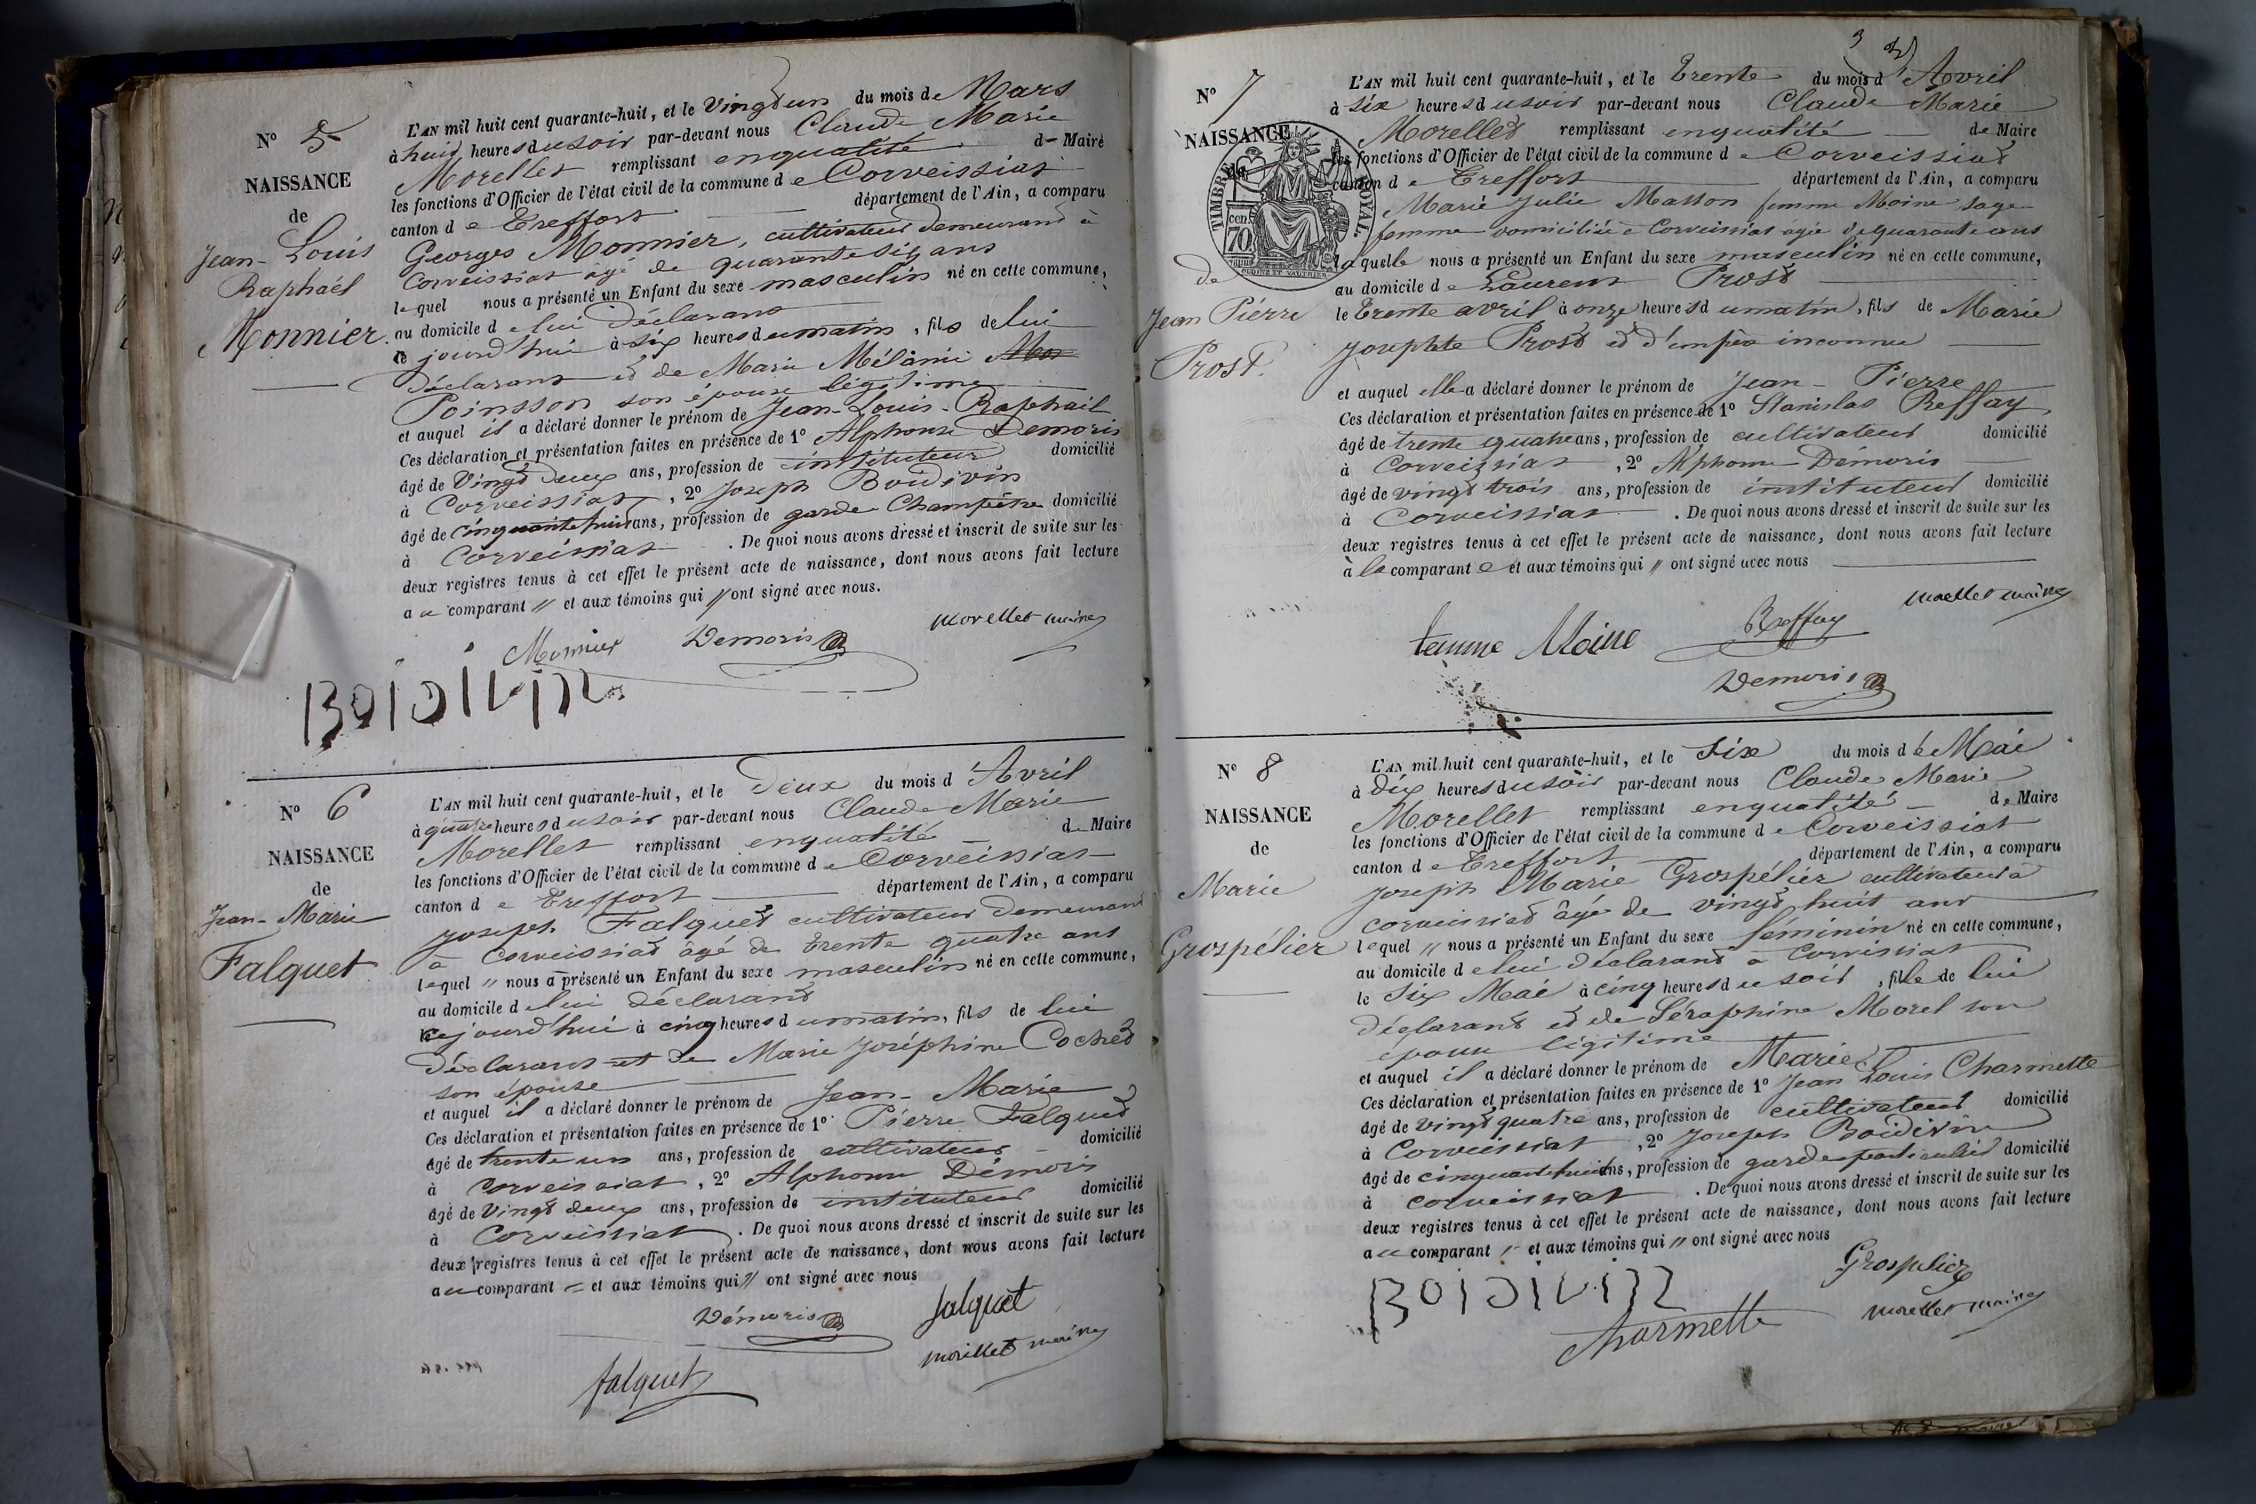 N° 5
NAISSANCE
de
Jean-Louis
Raphaël
Monnier.
L'AN mil huit cent quarante-huit, et le Vingt un du mois de Mars
à huit heures du soir par-devant nous Claude Marie
Morellet remplissant en qualité de Maire
les fonctions d'Officier de l'état civil de la commune de Corveissiat
canton de Treffort département de l'Ain, a comparu
Georges Monnier, cultivateur demeurant à
Corveissiat âgé de quarante six ans
lequel nous a présenté un Enfant du sexe masculin né en cette commune,
au domicile de lui déclarant
ce jourd'hui à six heures du matin, fils de lui
déclarant et de Marie Mélanie
Poinsson son épouse légitime
et auquel il a déclaré donner le prénom de Jean-Louis-Raphaël
Ces déclaration et présentation faites en présence de 1° Alphonse Demoris
âgé de Vingt deux ans, profession de instituteur domicilié
à Corveissiat, 2° Joseph Boidivin
âgé de cinquante huit ans, profession de garde Champêtre domicilié
à Corveissiat. De quoi nous avons dressé et inscrit de suite sur les
deux registres tenus à cet effet le présent acte de naissance, dont nous avons fait lecture
au comparant // et aux témoins qui // ont signé avec nous.
Monnier Demoris morellet maire
BOIDIVIN
N° 6
NAISSANCE
de
Jean-Marie
Falquet
L'AN mil huit cent quarante-huit, et le Deux du mois d'Avril
à quatre heures du soir par-devant nous Claude Marie
Morellet remplissant en qualité de Maire
les fonctions d'Officier de l'état civil de la commune de Corveissiat
canton de Treffort département de l'Ain, a comparu
Joseph Falquet cultivateur demeurant
à Corveissiat âgé de trente quatre ans
lequel // nous a présenté un Enfant du sexe masculin né en cette commune,
au domicile de lui déclarant
cejourd'hui à cinq heures du matin, fils de lui
déclarant et de Marie Joséphine Cochet
son épouse
et auquel il a déclaré donner le prénom de Jean-Marie
Ces déclaration et présentation faites en présence de 1° Pierre Falquet
âgé de trente un ans, profession de cultivateur domicilié
à Corveissiat, 2° Alphonse Démoris
âgé de Vingt deux ans, profession de instituteur domicilié
à Corveissiat. De quoi nous avons dressé et inscrit de suite sur les
deux registres tenus à cet effet le présent acte de naissance, dont nous avons fait lecture
au comparant = et aux témoins qui // ont signé avec nous
Démoris falquet
morellet maire
falquet
3
N° 7
NAISSANCE
de
Jean Pierre
Prost.
TIMBRE ROYAL.
70 cen.
L'AN mil huit cent quarante-huit, et le Trente du mois d'Avril
à six heures du soir par-devant nous Claude Marie
Morellet remplissant en qualité de Maire
les fonctions d'Officier de l'état civil de la commune de Corveissiat
canton de Treffort département de l'Ain, a comparu
Marie Julie Masson femme Moine sage
femme domiciliée à Corveissiat âgée de quarante ans
laquelle nous a présenté un Enfant du sexe masculin né en cette commune,
au domicile de Laurent Prost
le trente avril à onze heures du matin, fils de Marie
Josephte Prost et d'un père inconnu
et auquel elle a déclaré donner le prénom de Jean-Pierre
Ces déclaration et présentation faites en présence de 1° Stanislas Reffay
âgé de trente quatre ans, profession de cultivateur domicilié
à Corveissiat, 2° Alphonse Démoris
âgé de vingt trois ans, profession de instituteur domicilié
à Corveissiat. De quoi nous avons dressé et inscrit de suite sur les
deux registres tenus à cet effet le présent acte de naissance, dont nous avons fait lecture
à la comparante et aux témoins qui // ont signé avec nous
femme Moine Reffay morellet maire
Demoris
N° 8
NAISSANCE
de
Marie
Grospélier
L'AN mil huit cent quarante-huit, et le six du mois de Mai
à dix heures du soir par-devant nous Claude Marie
Morellet remplissant en qualité de Maire
les fonctions d'Officier de l'état civil de la commune de Corveissiat
canton de Treffort département de l'Ain, a comparu
Joseph Marie Grospélier cultivateur à
Corveissiat âgé de vingt huit ans
lequel // nous a présenté un Enfant du sexe féminin né en cette commune,
au domicile de lui déclarant à Corveissiat
le six Mai à cinq heures du soir, fille de lui
déclarant et de Séraphine Morel son
épouse légitime
et auquel il a déclaré donner le prénom de Marie
Ces déclaration et présentation faites en présence de 1° Jean Louis Charmette
âgé de vingt quatre ans, profession de cultivateur domicilié
à Corveissiat, 2° Joseph Boidivin
âgé de cinquante huit ans, profession de garde particulier domicilié
à Corveissiat. De quoi nous avons dressé et inscrit de suite sur les
deux registres tenus à cet effet le présent acte de naissance, dont nous avons fait lecture
au comparant // et aux témoins qui // ont signé avec nous
Grospelier
BOIDIVIN morellet maire
Charmette